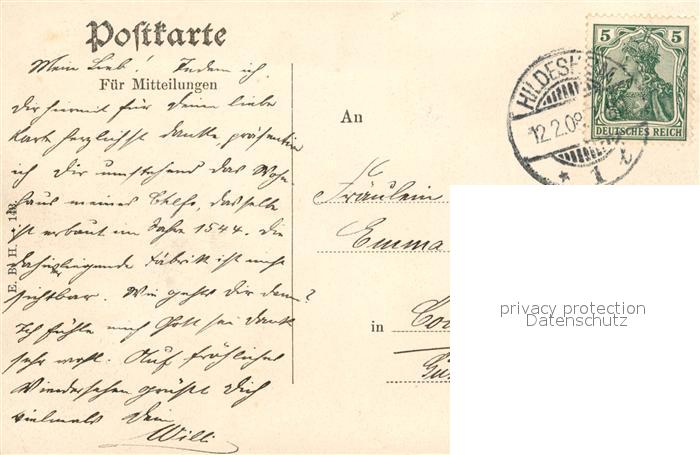 Postkarte
Mein Lieb! Indem ich
Für Mitteilungen
Dir hiermit für Deine liebe
Karte herzlichst danke, präsentiere
ich Dir umstehend das Wohn-
haus meines Chefs, dasselbe
ist erbaut im Jahre 1544. Die
dahinterliegende Fabrik ist nicht
sichtbar. Wie gehts Dir denn?
Ich fühle mich Gott sei Dank
sehr wohl. Auf fröhliches
Wiedersehen grüßt Dich
vielmals Dein
Willi
E. B. H.
An
Fräulein
Emma
in
HILDESHEIM
12.2.08
* 1 t
5 5
DEUTSCHES REICH
privacy protection
Datenschutz